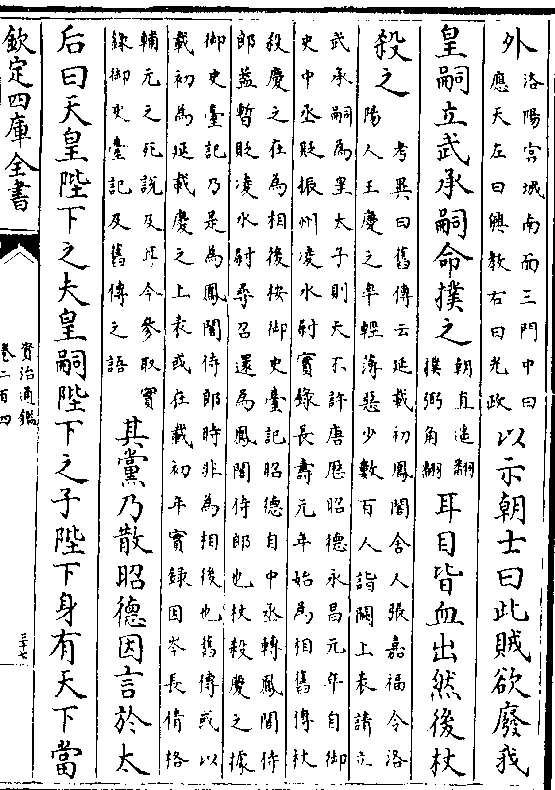 外洛陽宮城南面三門中曰應天左曰興教右曰光政以示朝士曰此賊欲廢我
皇嗣立武承嗣命撲之朝直遙翻撲弼角翻耳目皆血出然後杖
殺之考異曰舊傳云延載初鳳閣舍人張嘉福令洛陽人王慶之率輕薄惡少數百人詣闕上表請立
武承嗣為皇太子則天不許唐歷昭德永昌元年自御史中丞貶振州凌水尉實錄長壽元年始為相舊傳杖
殺慶之在為相後按御史臺記昭德自中丞轉鳳閣侍郎蓋暫貶凌水尉尋召還為鳳閣侍郎也杖殺慶之據
御史臺記乃是為鳳閣侍郎時非為相後也舊傳或以載初為延載慶之上表或在載初年實錄因岑長倩格
輔元之死說及耳今參取實錄御史臺記及舊傳之語其黨乃散昭德因言於太
后曰天皇陛下之夫皇嗣陛下之子陛下身有天下當
欽定四庫全書
資治通鑑
卷二百四
三十七